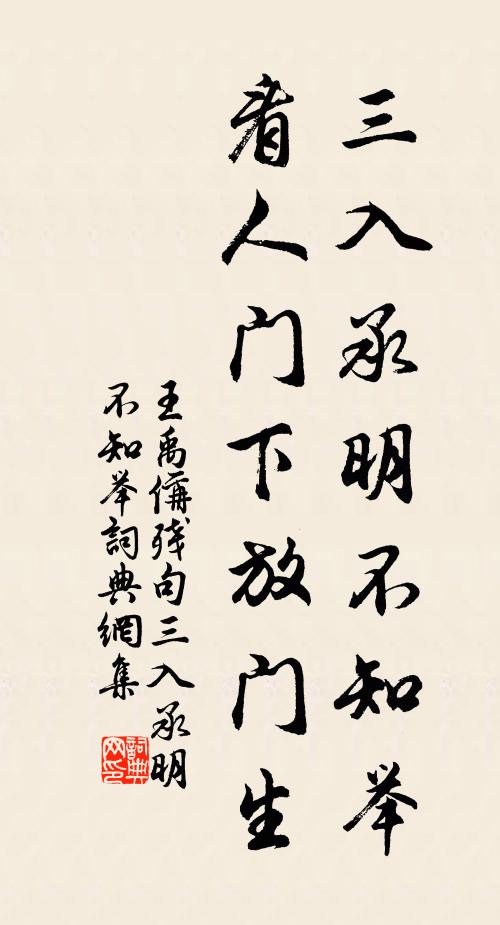 三入承明不知举
看人门下放门生
王禹偁残句三入承明
不知举詞典網集
詞典网印